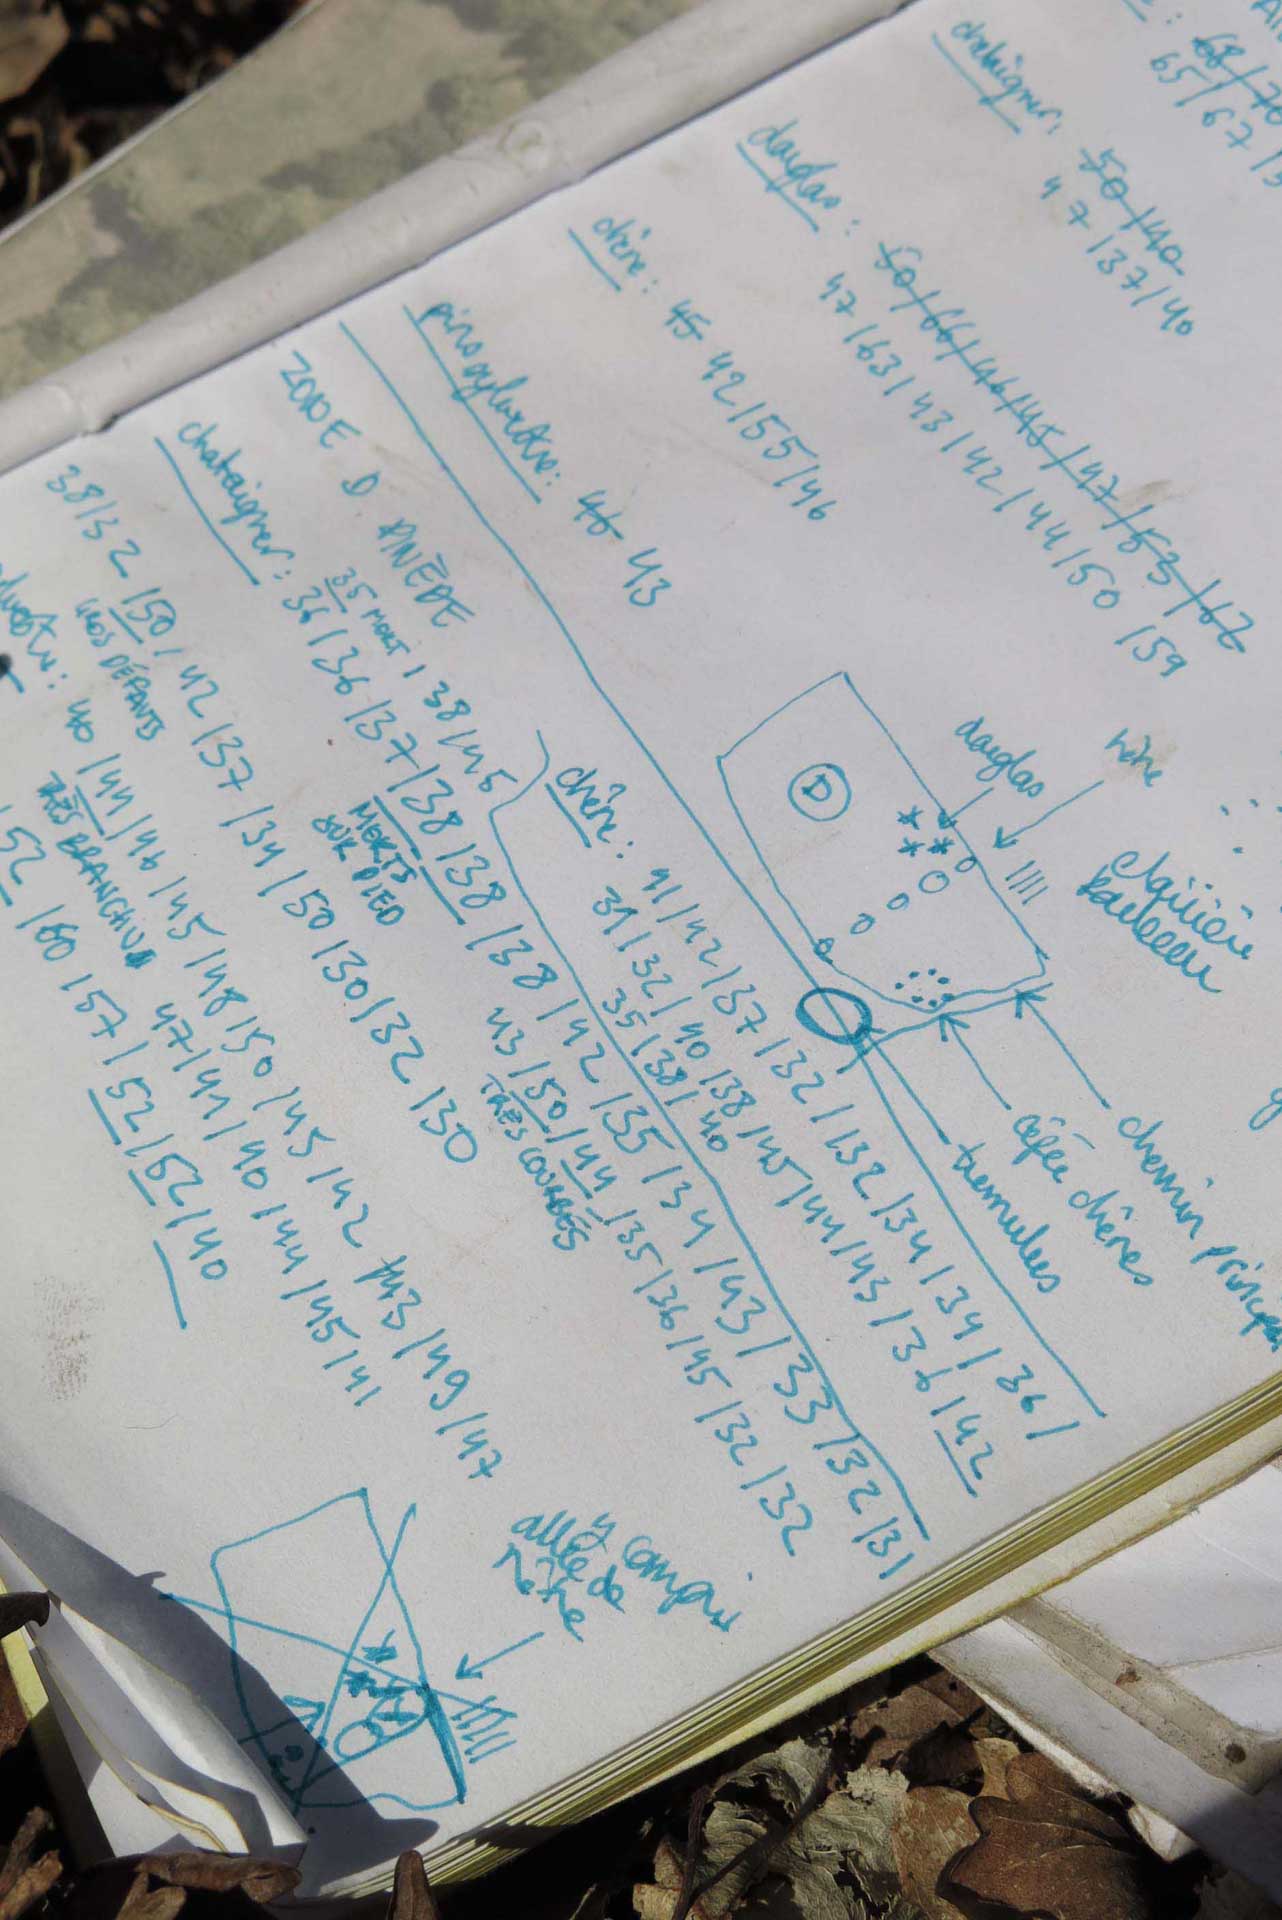 68/70
65/67/
chataigner: 50/40
47/37/40
douglas: 50/66/46/45/47/53/62
47/63/43/42/44/50/59
chêne: 45 42/55/46
pin sylvestre: 46 43
D
douglas
hêtre
clairière
chemin principal
cépée chênes
ZONE D PINÈDE
35 MORT / 38/45
chataigner: 36/36/37/38/38/38/42/35/34/43/33/32/31
MORTS
SUR PIED
43/50/44/35/36/45/32/32
TRÈS COURBÉS
chêne: 41/42/37/32/32/34/34/36/
31/32/40/38/45/44/43/36/42
35/38/40
38/32/50/42/37/34/50/30/32/30
GROS DÉFAUTS
40/44/46/45/48/50/45/42/43/49/47
TRÈS BRANCHU
47/41/40/44/45/41
52/60/57/52/52/40
y compris
allée de
hêtre